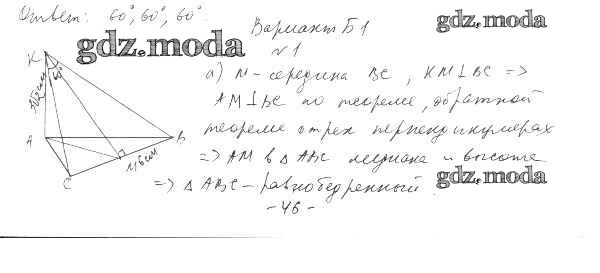 Ответ: 60°, 60°, 60°.
Вариант Б1
gdz.moda
gdz.moda
№1
K
60°
а) M – середина BC, KM⊥BC =>
AM⊥BC по теореме, обратной
теореме о трех перпендикулярах
A
B
=> AM в △ABC медиана и высота
M 6 см
C
=> △ABC – равнобедренный
gdz.moda
- 46 -